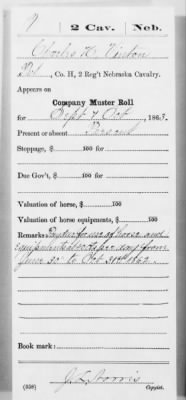 V | 2 Cav. | Neb.
Charles H. Vinton
Pvt., Co. H, 2 Reg't Nebraska Cavalry.
Appears on
Company Muster Roll
for Sept & Oct, 1862.
Present or absent Present
Stoppage, $ 100 for
Due Gov't, $ 100 for
Valuation of horse, $ 100
Valuation of horse equipments, $ 100
Remarks: Pay due for use of horse and
equipments 40 cts per day from
to Oct 31st 1862.
Book mark:
(358)
Copyist.